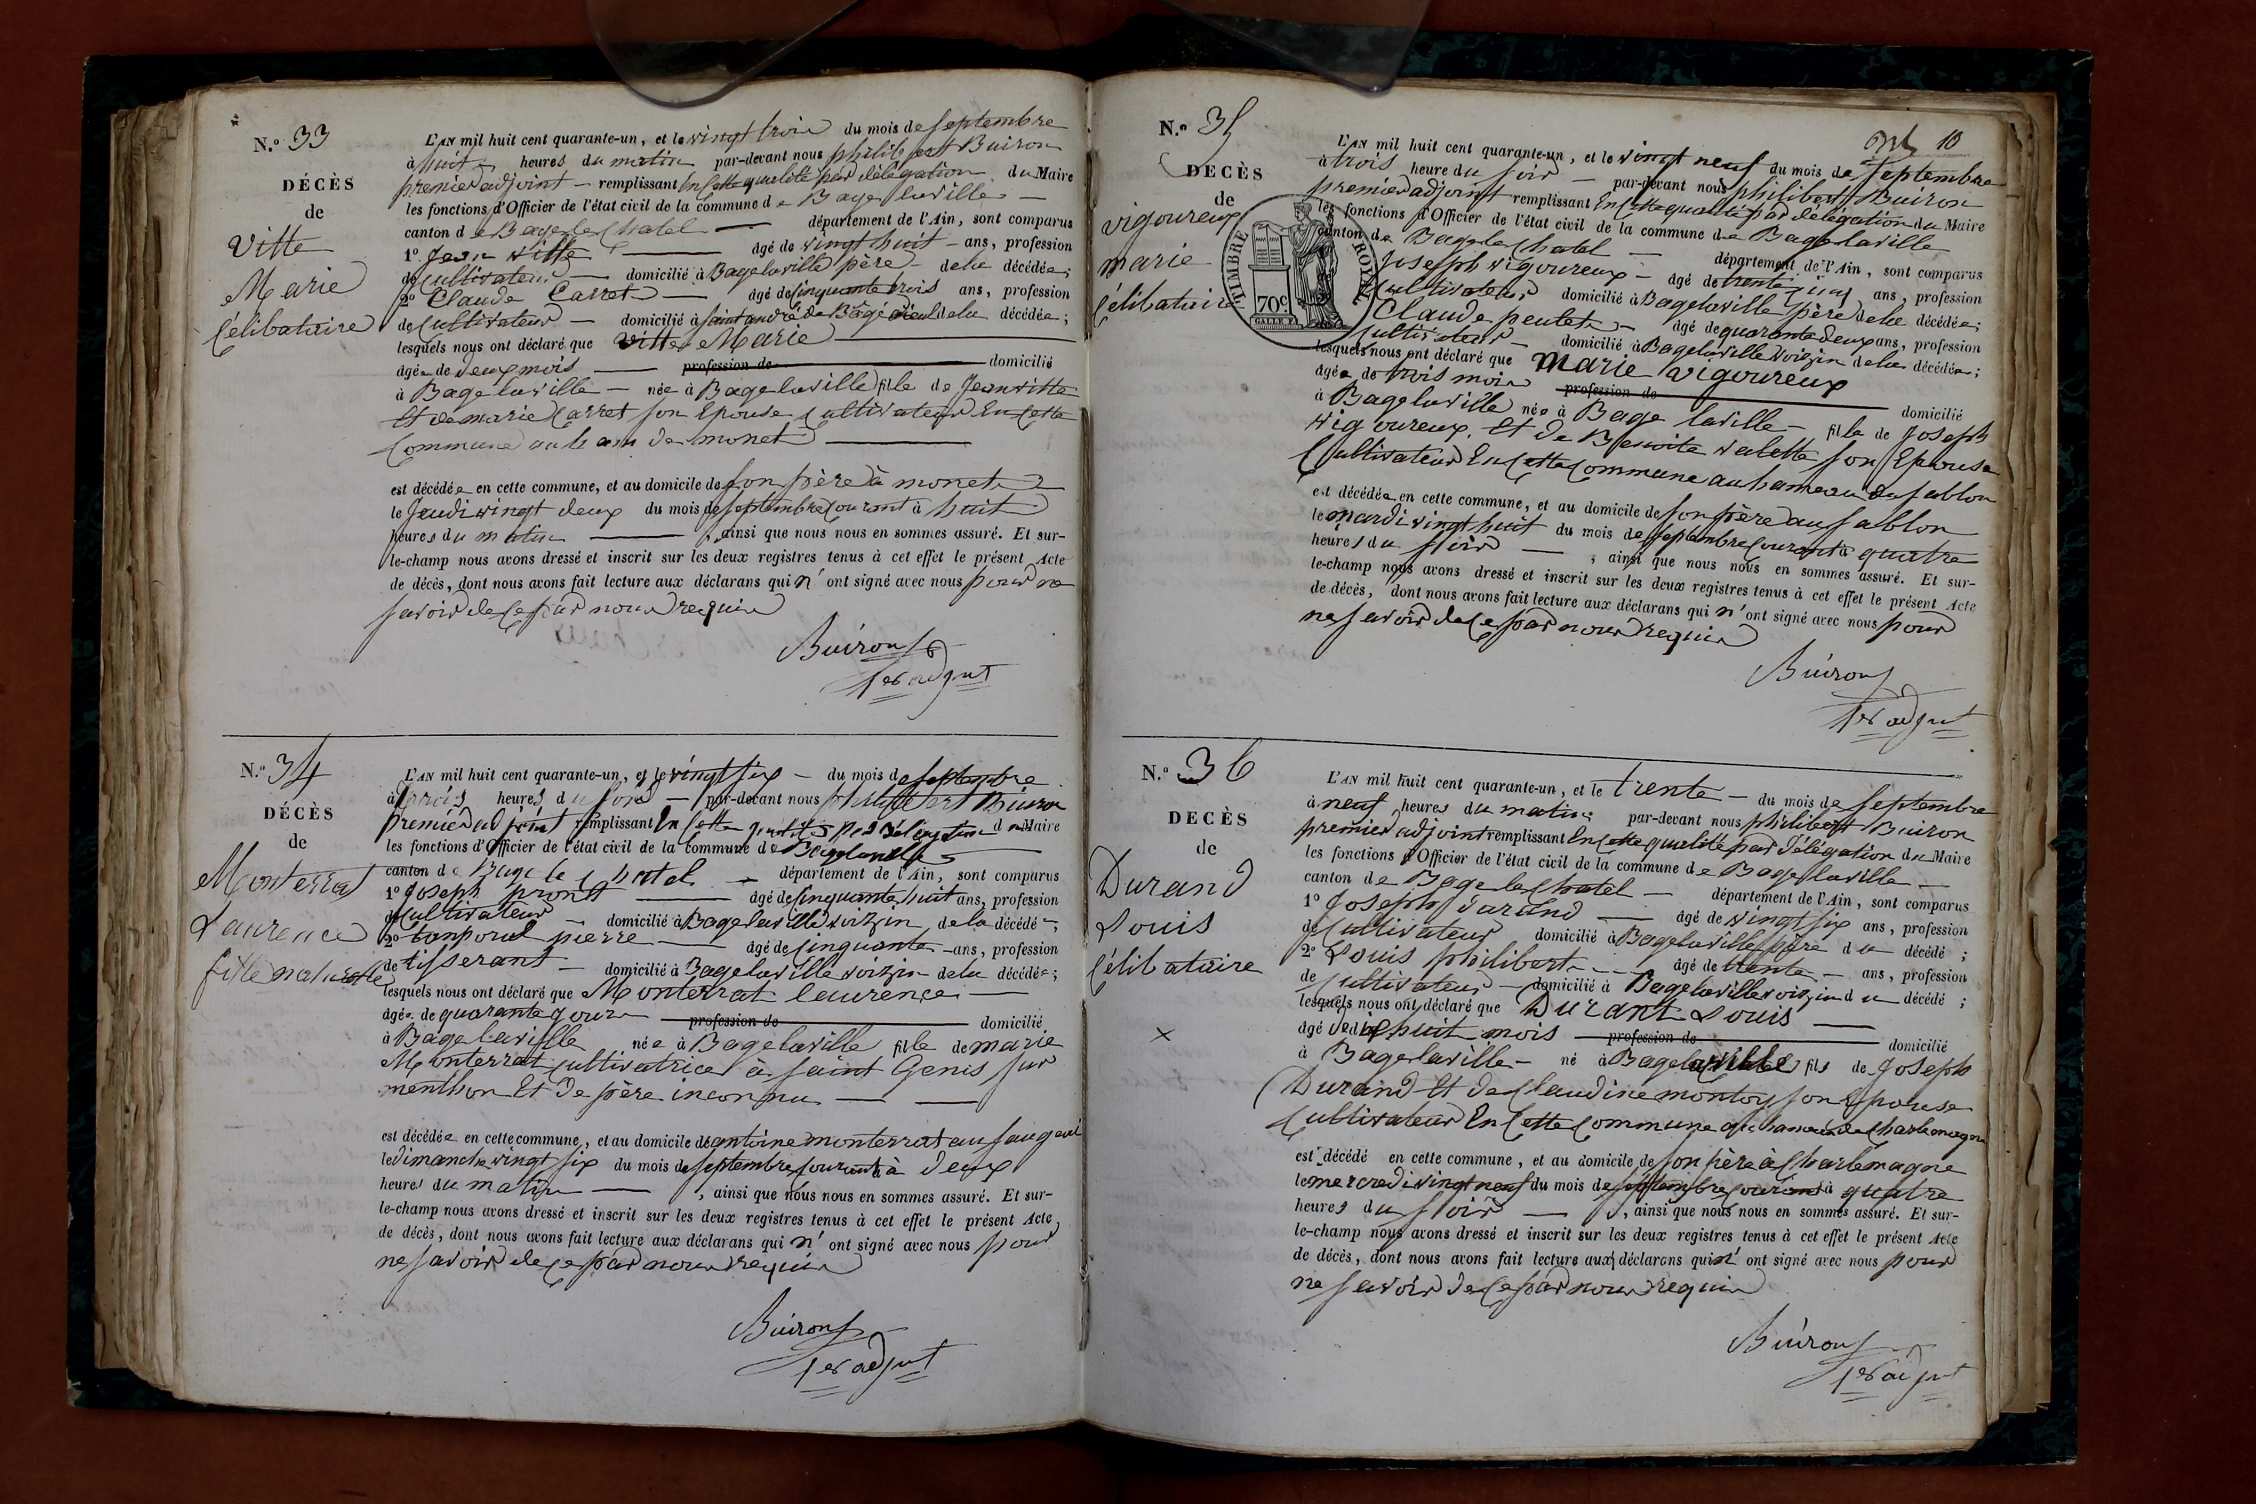 N.° 33
DÉCÈS
de
Vitte
Marie
Célibataire
L'AN mil huit cent quarante-un, et le vingt trois du mois de septembre
à huit heures du matin par-devant nous philibert Buiron
premier adjoint remplissant En cette qualité par délégation du Maire
les fonctions d'Officier de l'état civil de la commune de Bagelaville
canton de Bagelechatel département de l'Ain, sont comparus
1° Jean Vitte âgé de vingt huit ans, profession
de cultivateur domicilié à Bagelaville père de la décédée;
2° Claude Carret âgé de cinquante trois ans, profession
de cultivateur domicilié à saint andré de Bagé aïeul de la décédée;
lesquels nous ont déclaré que Vitte Marie
âgée de deux mois profession de domicilié
à Bagelaville née à Bagelaville fille de Jean vitte
Et de marie Carret son Epouse cultivateur En cette
commune au ham de monet
est décédée en cette commune, et au domicile de son père à monet
le Jeudi vingt deux du mois de septembre courant à huit
heures du matin, ainsi que nous nous en sommes assuré. Et sur-
le-champ nous avons dressé et inscrit sur les deux registres tenus à cet effet le présent Acte
de décès, dont nous avons fait lecture aux déclarans qui n'ont signé avec nous pour ne
savoir de ce par nous requis
Buiron
1er adjnt
N.° 34
DÉCÈS
de
Monterrat
Laurence
fille naturelle
L'AN mil huit cent quarante-un, et le vingt six du mois de septembre
à trois heures du soir par-devant nous philibert Buiron
premier adjoint remplissant En cette qualité par délégation du Maire
les fonctions d'Officier de l'état civil de la commune de Bagelaville
canton de Bage le chatel département de l'Ain, sont comparus
1° Joseph âgé de cinquante huit ans, profession
de cultivateur domicilié à Bagelaville voizin de la décédée;
2° pierre âgé de cinquante ans, profession
de tisserant domicilié à Bagelaville voizin de la décédée;
lesquels nous ont déclaré que Monterrat laurence
âgée de quarante jours profession de domicilié
à Bagelaville née à Bagelaville fille de marie
Monterrat cultivatrice à saint Genis sur
menthon Et de père inconnu
est décédée en cette commune, et au domicile de antoine monterrat au
le dimanche vingt six du mois de septembre courant à deux
heures du matin, ainsi que nous nous en sommes assuré. Et sur-
le-champ nous avons dressé et inscrit sur les deux registres tenus à cet effet le présent Acte
de décès, dont nous avons fait lecture aux déclarans qui n'ont signé avec nous pour
ne savoir de ce par nous requis
Buiron
1er adjnt
10
N.° 35
DÉCÈS
de
vigoureux
marie
Célibataire
TIMBRE ROYAL
70c
L'AN mil huit cent quarante-un, et le vingt neuf du mois de septembre
à trois heure du soir par-devant nous philibert Buiron
premier adjoint remplissant En cette qualité par délégation du Maire
les fonctions d'Officier de l'état civil de la commune de Bagelaville
canton de Bagelechatel département de l'Ain, sont comparus
Joseph vigoureux âgé de trente cinq ans, profession
cultivateur domicilié à Bagelaville père de la décédée;
Claude peulet âgé de quarante deux ans, profession
cultivateur domicilié à Bagelaville voizin de la décédée;
lesquels nous ont déclaré que Marie vigoureux
âgée de trois mois profession de domicilié
à Bagelaville née à Bage laville fille de Joseph
vigoureux Et de Benoite valette son Epouse
Cultivateur En cette commune au hameau du sablon
est décédée en cette commune, et au domicile de son père au sablon
le mardi vingt huit du mois de septembre courant à quatre
heures du soir; ainsi que nous nous en sommes assuré. Et sur-
le-champ nous avons dressé et inscrit sur les deux registres tenus à cet effet le présent Acte
de décès, dont nous avons fait lecture aux déclarans qui n'ont signé avec nous pour
ne savoir de ce par nous requis
Buiron
1er adjnt
N.° 36
DÉCÈS
de
Durand
Louis
Célibataire
L'AN mil huit cent quarante-un, et le trente du mois de septembre
à neuf heures du matin par-devant nous philibert Buiron
premier adjoint remplissant En cette qualité par délégation du Maire
les fonctions d'Officier de l'état civil de la commune de Bagelaville
canton de Bagelechatel département de l'Ain, sont comparus
1° Joseph durand âgé de vingt six ans, profession
de cultivateur domicilié à Bagelaville père du décédé;
2° Louis philibert âgé de trente ans, profession
de cultivateur domicilié à Bagelaville voizin du décédé;
lesquels nous ont déclaré que Durant Louis
âgé de dix huit mois profession de domicilié
à Bagelaville né à Bagelaville fils de Joseph
Durand Et de Claudine montoy son Epouse
Cultivateur En cette commune au hameau de Charlemagne
est décédé en cette commune, et au domicile de son père à Charlemagne
le mercredi vingt neuf du mois de septembre courant à quatre
heures du soir, ainsi que nous nous en sommes assuré. Et sur-
le-champ nous avons dressé et inscrit sur les deux registres tenus à cet effet le présent Acte
de décès, dont nous avons fait lecture aux déclarans qui n'ont signé avec nous pour
ne savoir de ce par nous requis
Buiron
1er adjnt